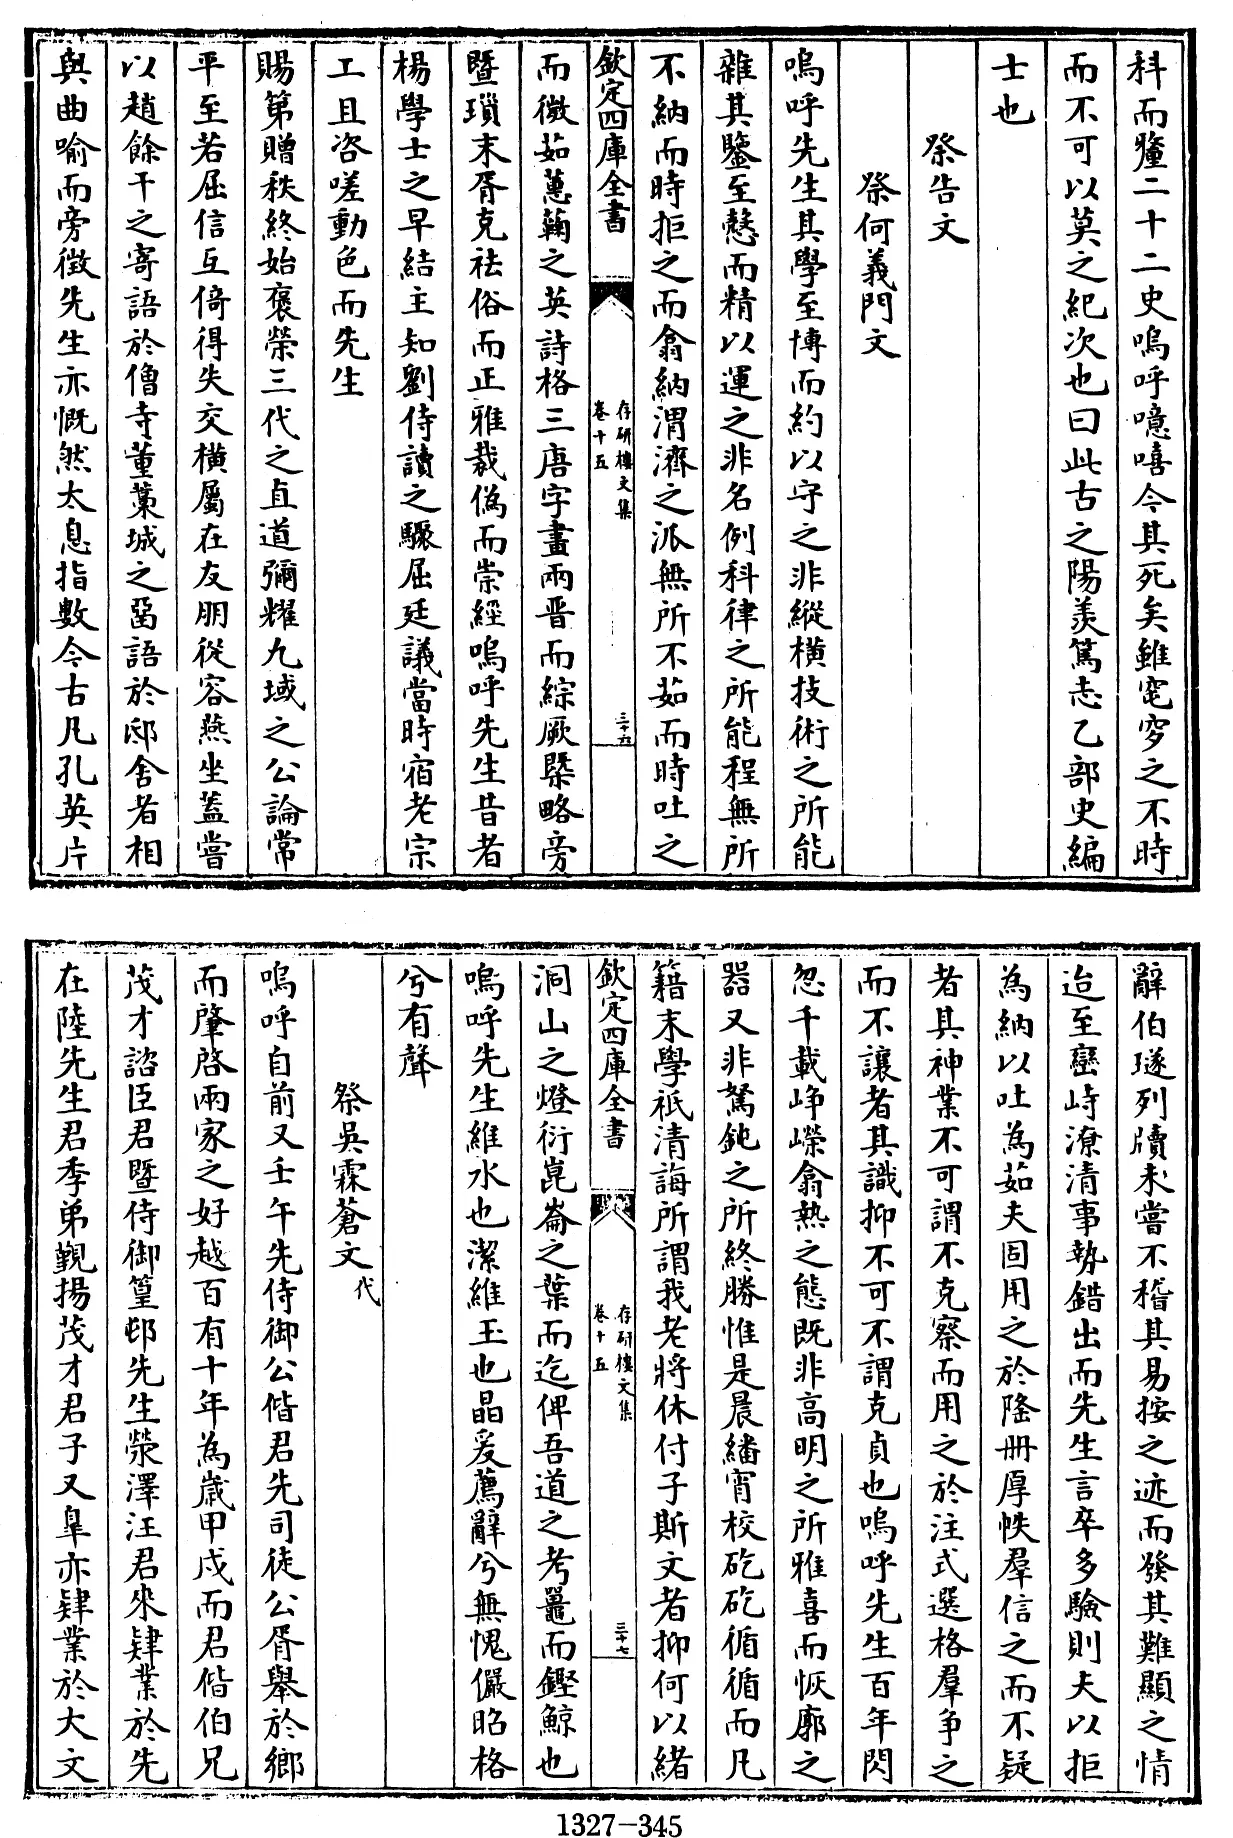 科而釐二十二史嗚呼噫嘻今其死矣雖窀穸之不時
而不可以莫之紀次也曰此古之陽羨篤志乙部史編
士也
祭告文
祭何義門文
嗚呼先生其學至博而約以守之非縱橫技術之所能
雜其鑒至慤而精以運之非名例科律之所能程無所
不納而時拒之而翕納渭濟之派無所不茹而時吐之
欽定四庫全書
存研樓文集
卷十五
三十六
而徵茹蕙蘜之英詩格三唐字畫兩晋而綜厥槩略旁
暨瑣末胥克祛俗而正雅裁偽而崇經嗚呼先生昔者
楊學士之早結主知劉侍讀之驟屈廷議當時宿老宗
工且咨嗟動色而先生
賜第贈秩終始褒榮三代之直道彌耀九域之公論常
平至若屈信互倚得失交橫屬在友朋從容燕坐蓋嘗
以趙餘干之寄語於僧寺董藁城之畱語於邸舍者相
與曲喻而旁徵先生亦慨然太息指數今古凡孔英片
辭伯璲列牘未嘗不稽其易按之迹而發其難顯之情
迨至巒峙潦清事勢錯出而先生言卒多驗則夫以拒
為納以吐為茹夫固用之於隆冊厚帙羣信之而不疑
者其神業不可謂不克察而用之於注式選格羣争之
而不讓者其識抑不可不謂克貞也嗚呼先生百年閃
忽千載崢嶸翕熱之態既非高明之所雅喜而恢廓之
器又非駑鈍之所終勝惟是晨繙宵校矻矻循循而凡
籍末學祇清誨所謂我老將休付子斯文者抑何以緒
欽定四庫全書
存研樓文集
卷十五
三十七
洞山之燈衍崑崙之葉而迄俾吾道之考鼉而鏗鯨也
嗚呼先生維水也潔維玉也晶爰薦辭兮無愧儼昭格
兮有聲
祭吳霖蒼文代
嗚呼自前又壬午先侍御公偕君先司徒公胥舉於鄉
而肇啓兩家之好越百有十年為歲甲戍而君偕伯兄
茂才諮臣君暨侍御篁邨先生滎澤汪君來肄業於先
在陸先生君季弟覲揚茂才君子又臯亦肄業於大文
1327-345